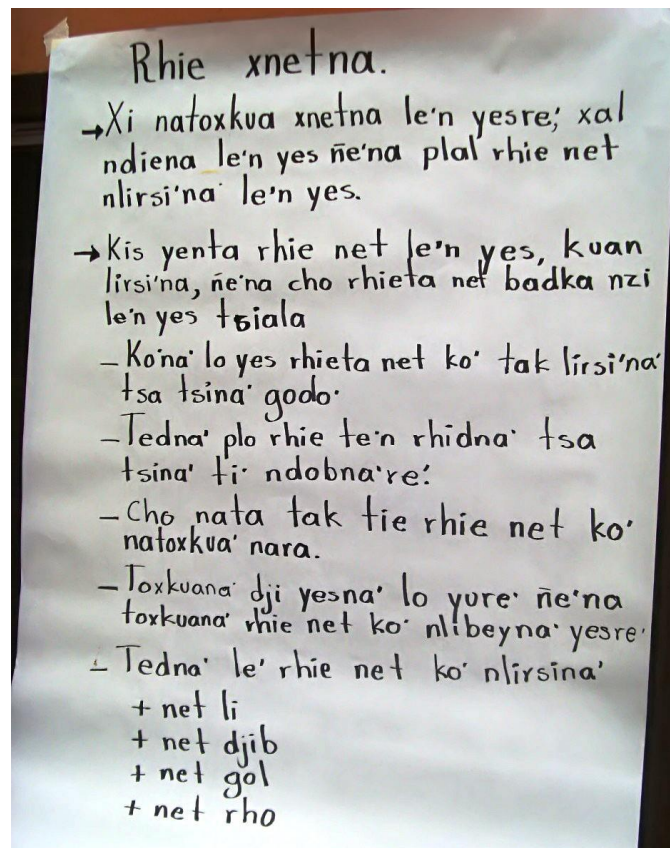 Rhie xnetna.
→Xi natoxkua xnetna le'n yesre; xal
ndiena le'n yes ñe'na plal rhie net
nlirsi'na' le'n yes.
→Kis yenta rhie net le'n yes, kuan
lirsi'na, ñe'na cho rhieta net badka nzi
le'n yes tsiala
– Ko'na' lo yes rhieta net ko' tak lirsi'na'
tsa tsina' godo'
– Tedna' plo rhie te'n rhidna' tsa
tsina' ti' ndobna're'.
– Cho nata tak tie rhie net ko'
natoxkua' nara.
– Toxkuana' dji yesna' lo yure' ñe'na
toxkuana' rhie net ko' nlibeyna' yesre'
– Tedna' le' rhie net ko' nlirsina'
+ net li
+ net djib
+ net gol
+ net rho